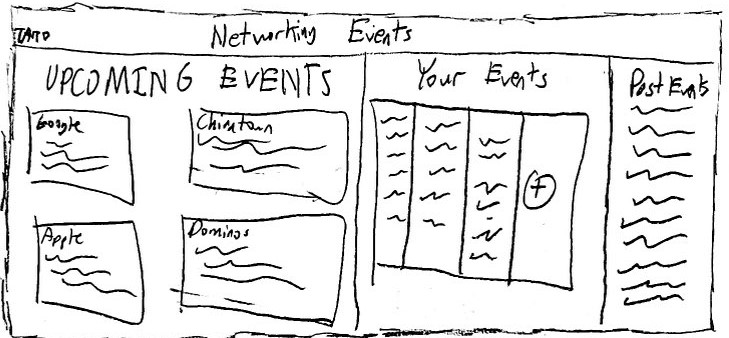 Networking Events
UPCOMING EVENTS
Google
Chinatown
Apple
Dominos
Your Events
+
Past Events